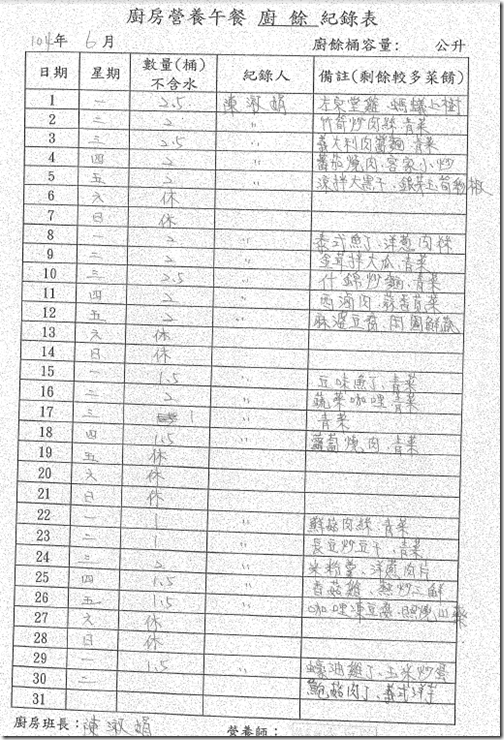 廚房營養午餐 廚餘 紀錄表
104年 6月 廚餘桶容量: 公升
日期 星期 數量(桶)不含水 紀錄人 備註(剩餘較多菜餚)
1 一 2.5 陳淑娟 左宗堂雞、螞蟻上樹
2 二 2 〃 竹筍炒肉絲、青菜
3 三 2.5 〃 義大利肉醬麵、青菜
4 四 2 〃 蕃茄燒肉、客家小炒
5 五 2 〃 涼拌大黑干、
6 六 休
7 日 休
8 一 2 〃 泰式魚丁、洋蔥肉絲
9 二 2 〃 拌大瓜、青菜
10 三 2.5 〃 什錦炒麵、青菜
11 四 2 〃 西滷肉、
12 五 2 〃 麻婆豆腐、
13 六 休
14 日 休
15 一 1.5 〃 豆味魚丁、青菜
16 二 2 〃 蔬菜咖哩、青菜
17 三 1 〃 青菜
18 四 1.5 〃 蘿蔔燒肉、青菜
19 五 休
20 六 休
21 日 休
22 一 1 〃 鮮菇肉絲、青菜
23 二 1 〃 長豆炒豆干、青菜
24 三 2 〃 米粉羹、洋蔥肉片
25 四 1.5 〃 香菇雞、
26 五 1.5 〃 咖哩凍豆腐、
27 六 休
28 日 休
29 一 1.5 〃 蠔油雞丁、玉米炒蛋
30 二 鮑菇肉丁、
31
廚房班長:陳淑娟 營養師: